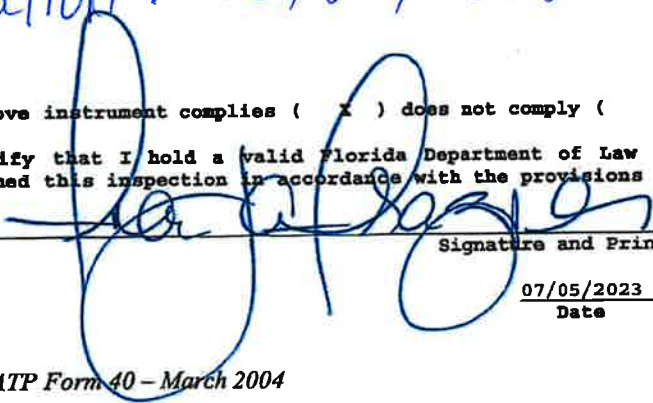 ove instrument complies ( X ) does not comply (
ify that I hold a valid Florida Department of Law
ned this inspection in accordance with the provisions
Signature and Prin
07/05/2023
Date
ATP Form 40 – March 2004